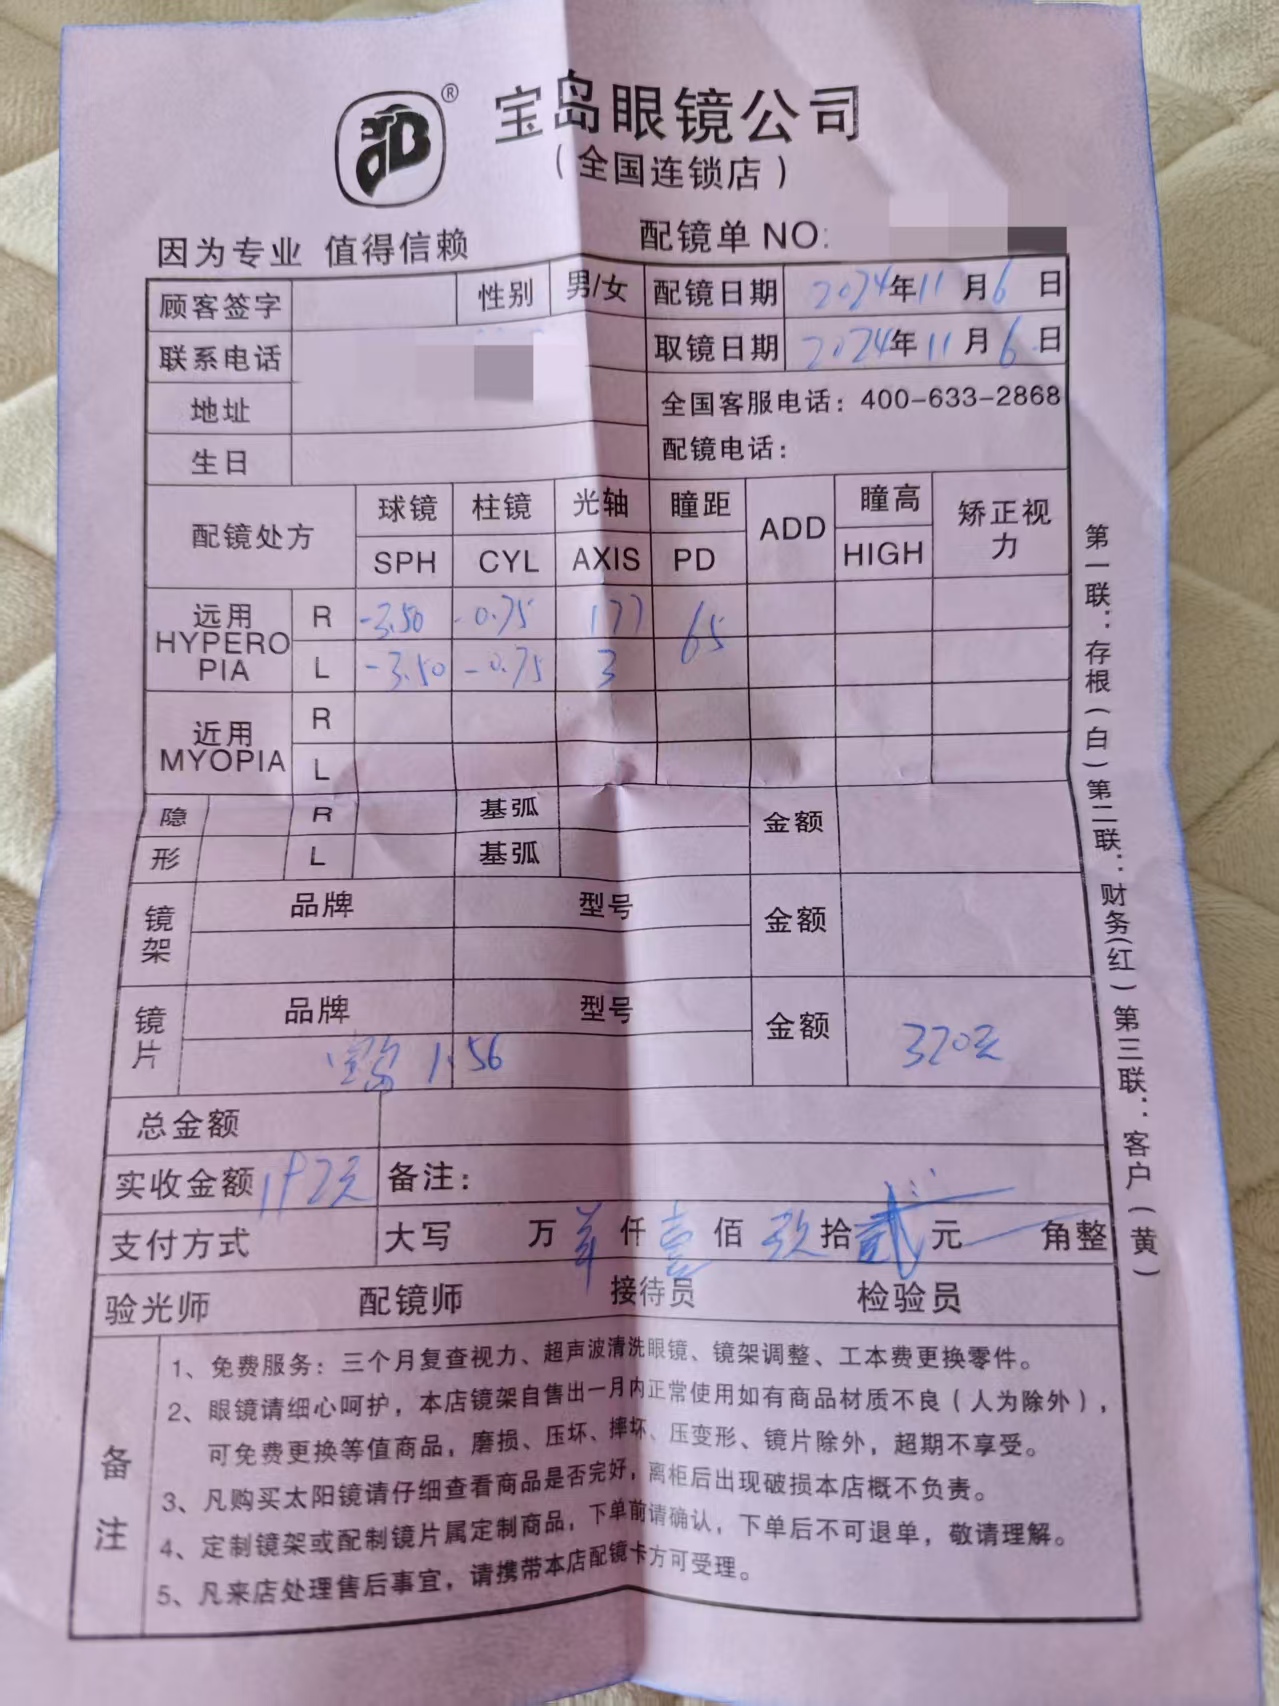 宝岛眼镜公司
（全国连锁店）
因为专业 值得信赖
配镜单 NO:
顾客签字 性别 男/女 配镜日期 2024年11月6日
联系电话 取镜日期 2024年11月6日
地址 全国客服电话：400-633-2868
生日 配镜电话：
配镜处方 球镜 柱镜 光轴 瞳距 ADD 瞳高 矫正视力
SPH CYL AXIS PD HIGH
远用 HYPEROPIA R -3.50 -0.75 177 65
L -3.50 -0.75 3
近用 MYOPIA R
L
隐形 R 基弧 金额
L 基弧
镜架 品牌 型号 金额
镜片 品牌 型号 金额 320元
宝岛 1.56
总金额
实收金额 192元 备注：
支付方式 大写 万 仟 壹 佰 玖 拾 贰 元 角整
验光师 配镜师 接待员 检验员
备注
1、免费服务：三个月复查视力、超声波清洗眼镜、镜架调整、工本费更换零件。
2、眼镜请细心呵护，本店镜架自售出一月内正常使用如有商品材质不良（人为除外），
可免费更换等值商品，磨损、压坏、摔坏、压变形、镜片除外，超期不享受。
3、凡购买太阳镜请仔细查看商品是否完好，离柜后出现破损本店概不负责。
4、定制镜架或配制镜片属定制商品，下单前请确认，下单后不可退单，敬请理解。
5、凡来店处理售后事宜，请携带本店配镜卡方可受理。
第一联：存根（白）第二联：财务（红）第三联：客户（黄）